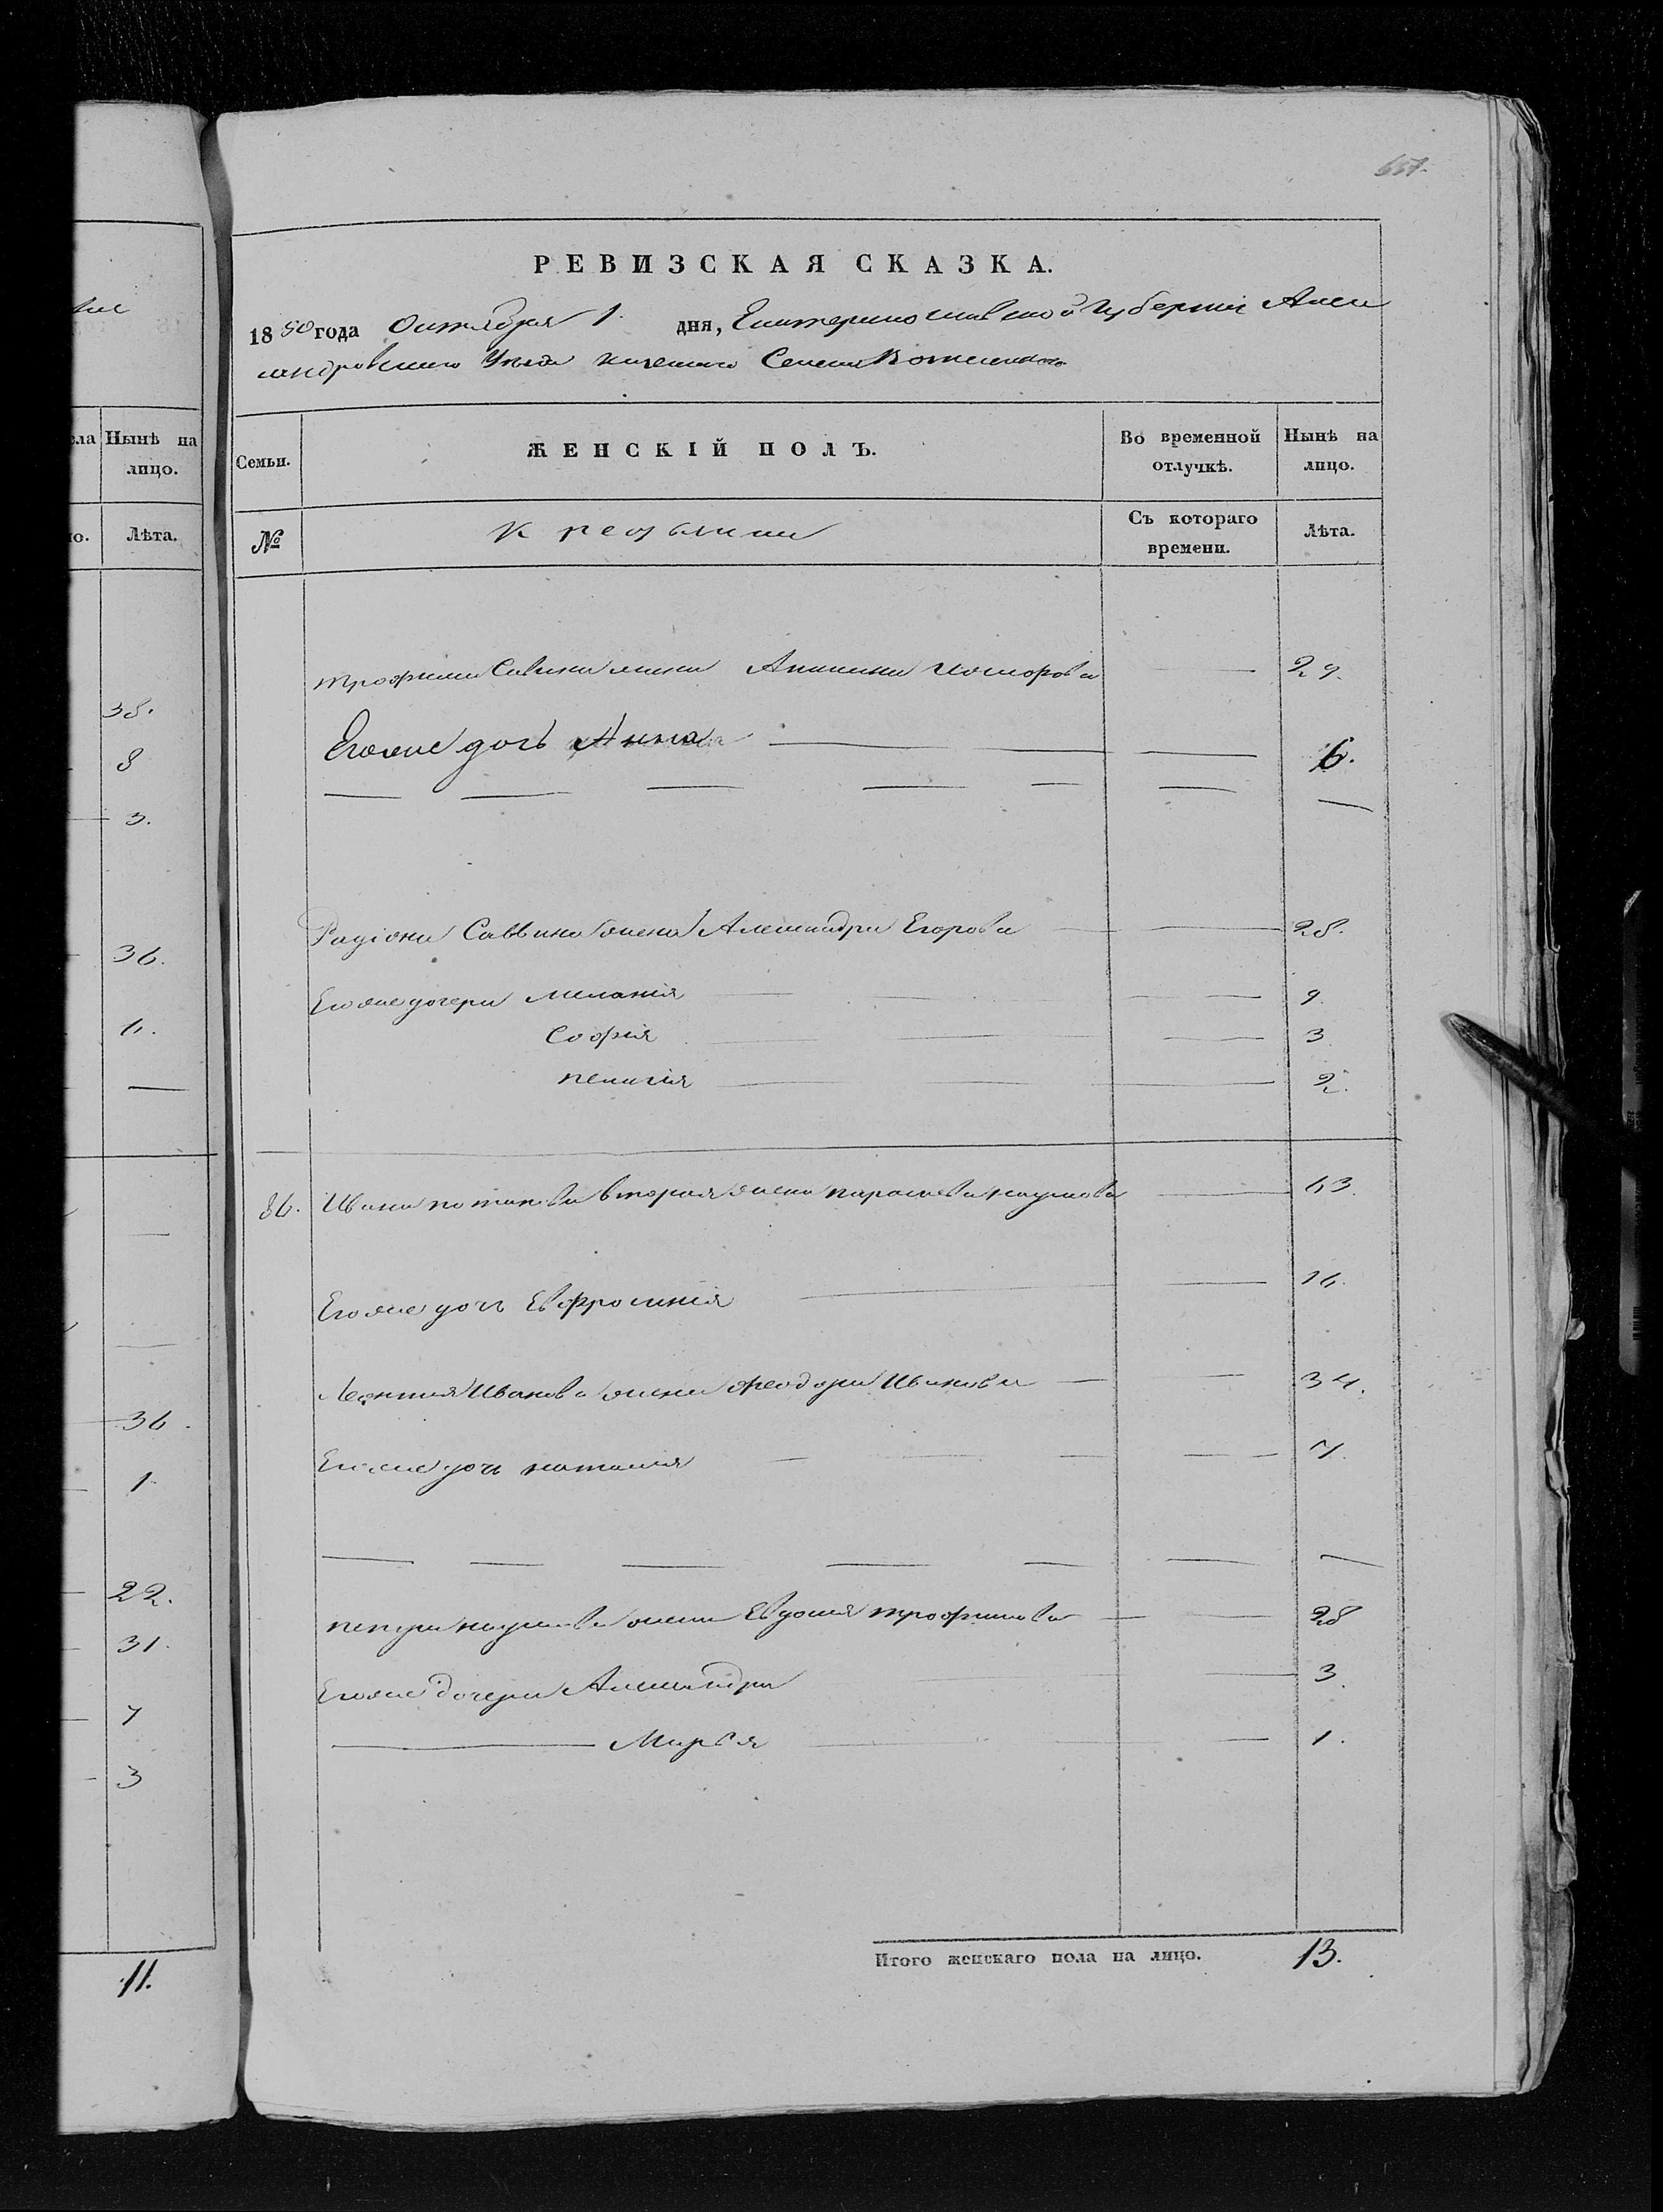 657.
РЕВИЗСКАЯ СКАЗКА.
1850 года Октября 1. дня, Екатеринославской Губерніи Алек
сандровскаго Уезда казеннаго Селенія
ла Нынѣ на лицо.
о. Лѣта.
38.
8
3.
36.
6.
36.
1
22.
31.
7
3
11.
Семьи. ЖЕНСКІЙ ПОЛЪ. Во временной отлучкѣ. Нынѣ на лицо.
№ Съ котораго времени. Лѣта.
Трофима Савина жена Акилина 29.
Егоже дочь Анна 6.
Радіона Саввина жена Александра Егорова 28.
Егоже дочери Меланія 9.
Софія 3
Пелагія 2.
86. Ивана Потапова вторая жена Параскева Наумова 63.
Егоже дочь Евфросинія 16.
Леонтия Иванова жена Феодора Иванова 34.
Егоже дочь Наталія 7.
Петра Наумова жена Евдокія Трофимова 28
Егоже дочери Александра 3.
Марья 1.
Итого женскаго пола на лицо. 13.